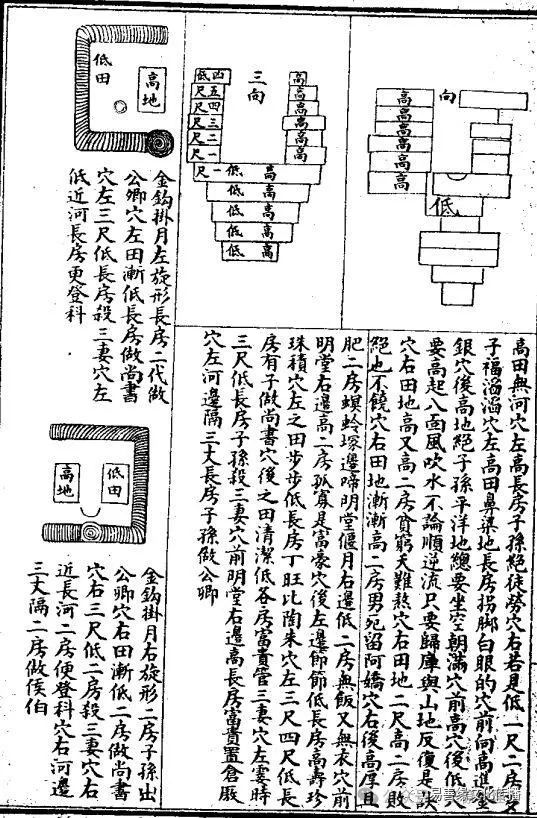 向
高
高
高
高
高
低
三向
低四
尺五
尺四
尺三
尺二
尺一
尺一
高
高
高
高
高
低 高
低 高
低 高
低 高
低 高
低田
高地
高田無河穴左高長房子孫絕徒勞穴右若是低一尺二房兒
子福滔滔穴左高田鼻梁地長房拐腳白眼的穴前向高進金
銀穴後高地絕子孫平洋地總要坐空朝滿穴前高穴後低人
要高起八面風吹水不論順逆流只要歸庫與山地反復是決
穴右田地高又高二房貧窮天難熬穴右田地二尺高二房敗
絕也不饒穴右田地漸漸高二房男死留阿嬌穴右後高厚且
肥二房螟蛉塚邊啼明堂偃月右邊低二房無飯又無衣穴前
明堂右邊高二房孤寡是富豪穴後左邊節節低長房高壽珍
珠積穴左之田步步低長房丁旺比陶朱穴左三尺四尺低長
房有子做尚書穴後之田清潔低各房富貴管三妻穴左霎時
三尺低長房子孫殺三妻穴前明堂右邊高長房富貴置倉厫
穴左河邊隔三丈長房子孫做公卿
金鈎掛月左旋形長房二代做
公卿穴左田漸低長房做尚書
穴左三尺低長房殺三妻穴左
低近河長房更登科
低田
高地
金鈎掛月右旋形二房子孫出
公卿穴右田漸低二房做尚書
穴右三尺低二房殺三妻穴右
近長河二房便登科穴右河邊
三丈隔二房做侯伯
易善緣文化传播